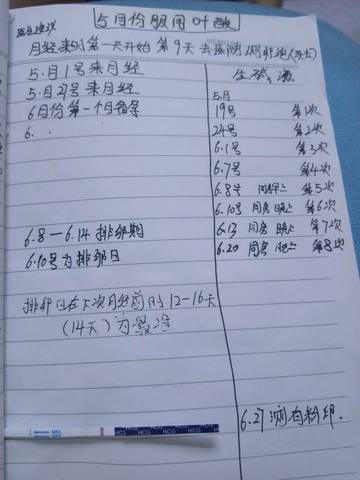 5月份服用叶酸
医生建议
月经来的第一天开始 第9天去医院测卵泡(突长)
5.月1号来月经
5.月27号来月经
6月份第一个月备孕
6. .
6.8-6.14排卵期
6.10号为排卵日
排卵日在下次月经前的12-16天
(14天)为最准
5月
19号 第1次
24号 第2次
6.1号 第3次
6.7号 第4次
6.8号 同房 第5次
6.10号 同房 晚上 第6次
6.13 同房 晚上 第7次
6.20 同房 晚上 第8次
6.27测有粉印.
MAX
HCG HCG HCG